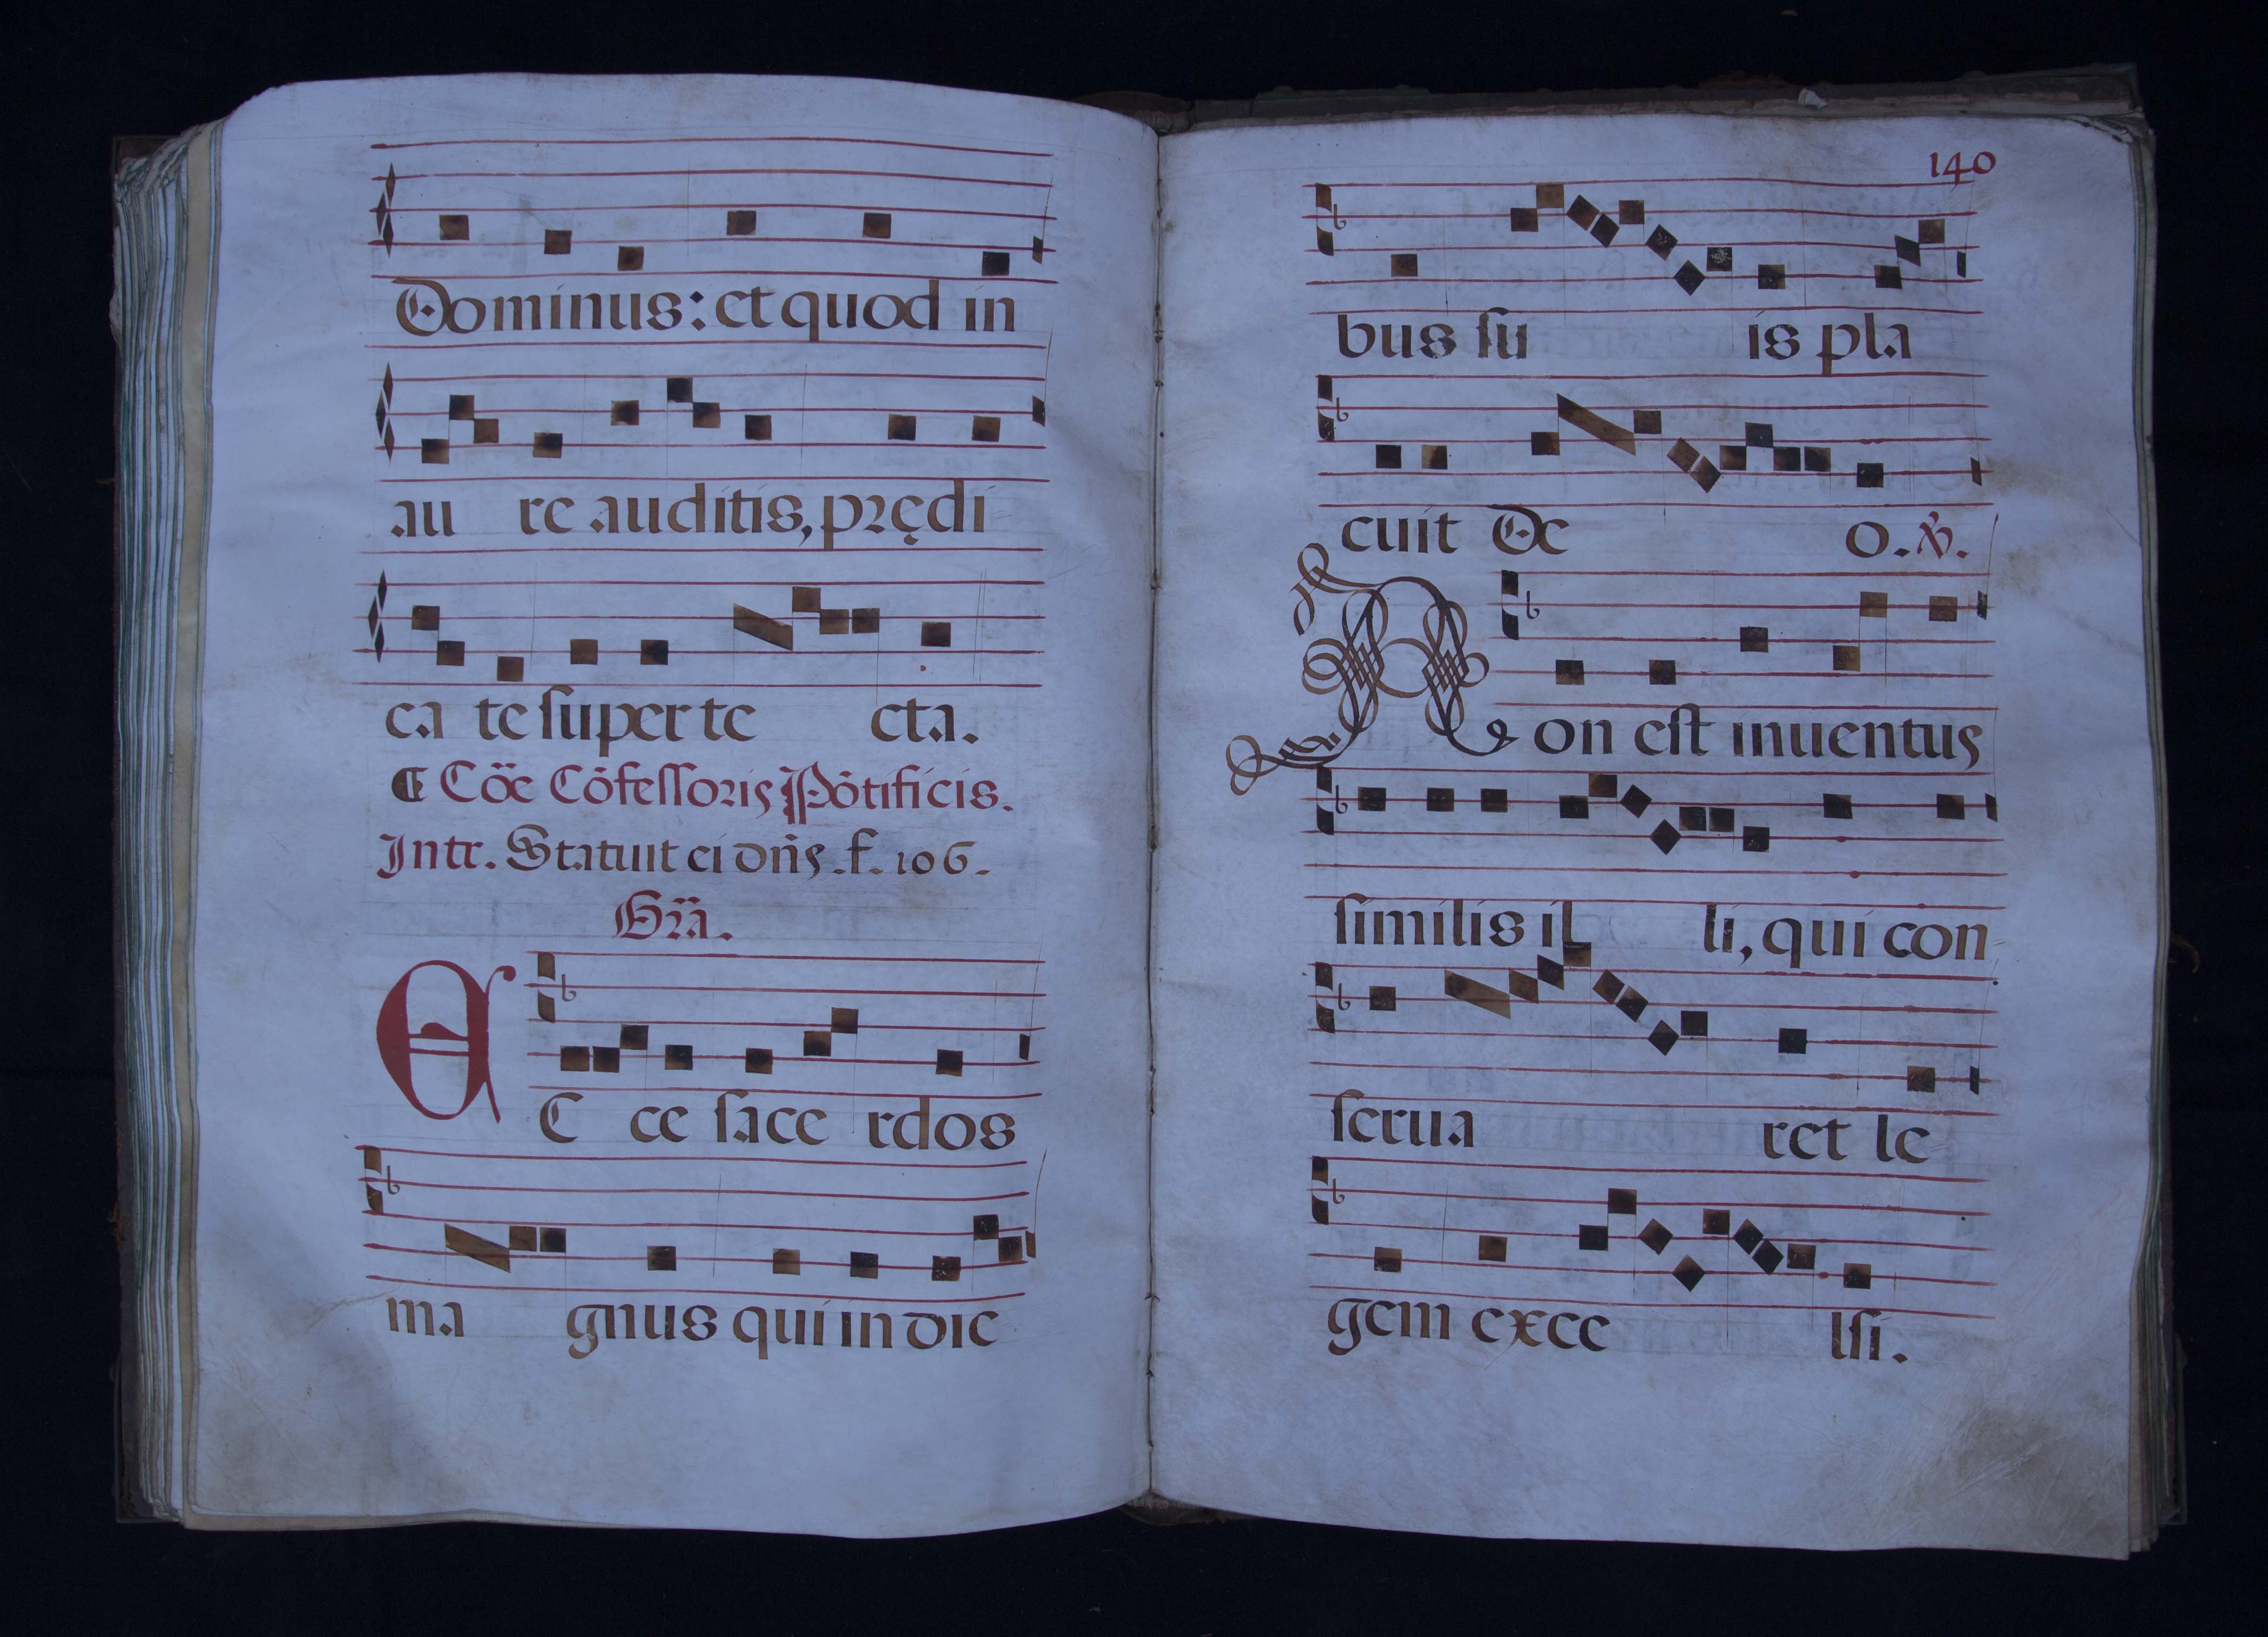 Dominus: et quod in
au re auditis, prędi
ca te ſuper te cta.
¶ Cõe Cõfeſſoris Põtificis.
Intr. Statuit ei dñs. f. 106.
Grã.
EC ce ſace rdos
ma gnus qui in die
140
bus ſu is pla
cuit De o. ℣.
Non eſt inuentus
ſimilis il li, qui con
ſerua ret le
gem exce lſi.